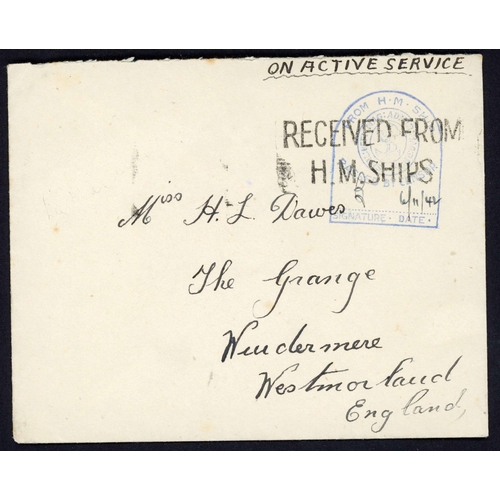 ON ACTIVE SERVICE
FROM H.M. SH
RECEIVED FROM
H.M. SHIPS
6/11/42
SIGNATURE · DATE ·
Miss H. L. Dawes
The Grange
Windermere
Westmorland
England,